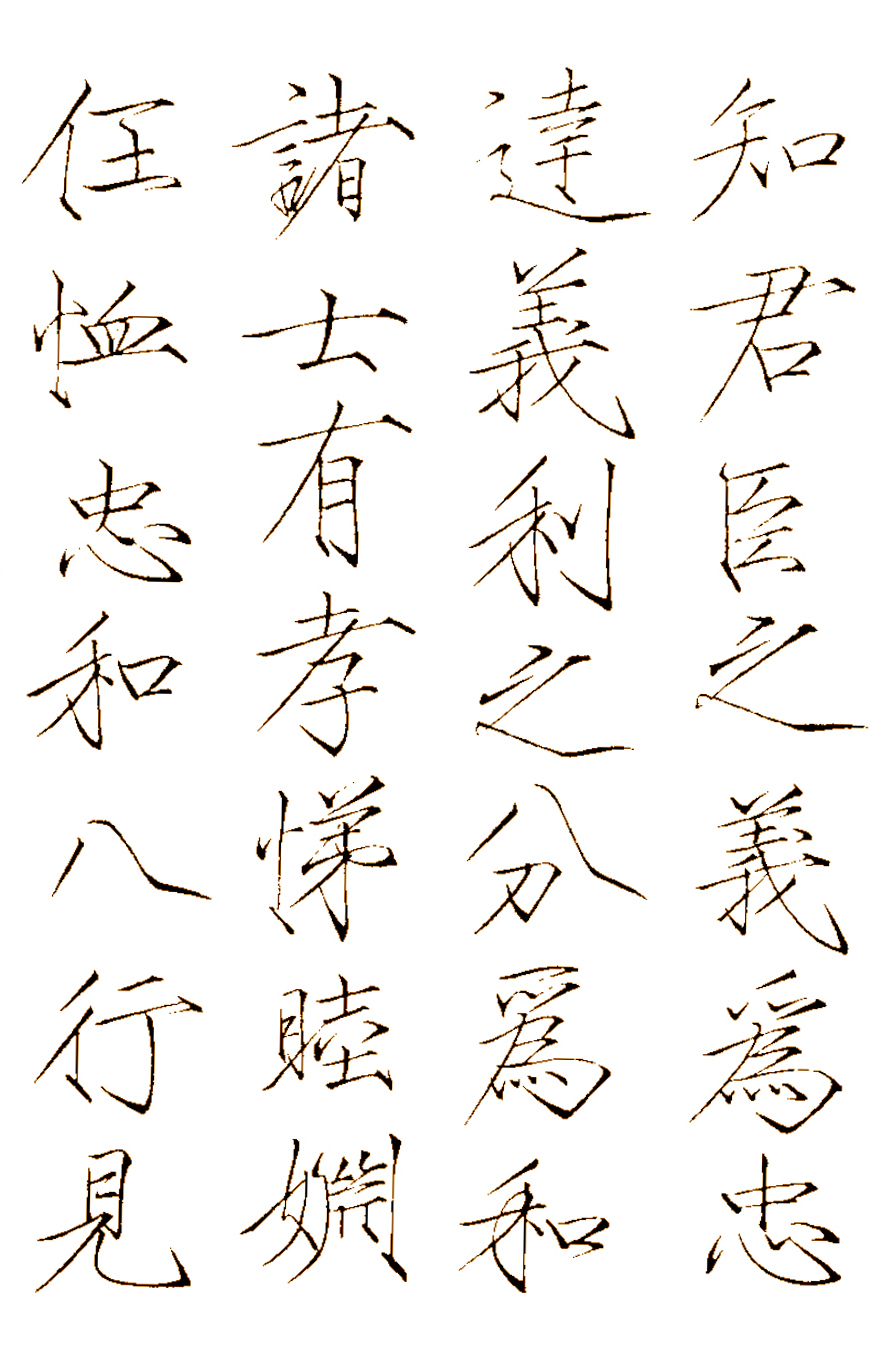 知君臣之義為忠
達義利之分爲和
諸士有孝悌睦婣
任恤忠和八行見